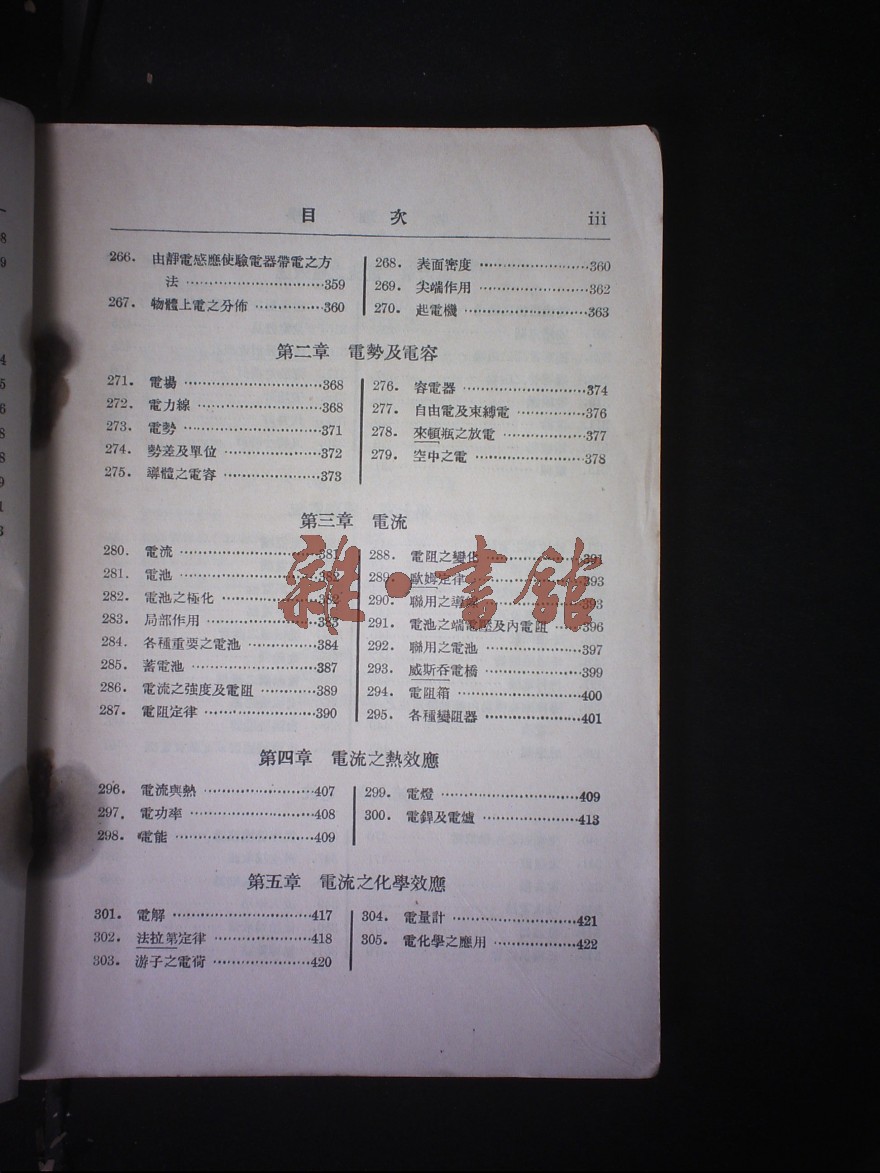 目 次 iii
266. 由靜電感應使驗電器帶電之方
法 ……359
267. 物體上電之分佈 ……360
268. 表面密度 ……360
269. 尖端作用 ……362
270. 起電機 ……363
第二章 電勢及電容
271. 電場 ……368
272. 電力線 ……368
273. 電勢 ……371
274. 勢差及單位 ……372
275. 導體之電容 ……373
276. 容電器 ……374
277. 自由電及束縛電 ……376
278. 來頓瓶之放電 ……377
279. 空中之電 ……378
第三章 電流
280. 電流 ……381
281. 電池 ……382
282. 電池之極化 ……382
283. 局部作用 ……383
284. 各種重要之電池 ……384
285. 蓄電池 ……387
286. 電流之強度及電阻 ……389
287. 電阻定律 ……390
288. 電阻之變化 ……391
289. 歐姆定律 ……393
290. 聯用之導 ……393
291. 電池之端電壓及內電阻 ……396
292. 聯用之電池 ……397
293. 威斯吞電橋 ……399
294. 電阻箱 ……400
295. 各種變阻器 ……401
第四章 電流之熱效應
296. 電流與熱 ……407
297. 電功率 ……408
298. 電能 ……409
299. 電燈 ……409
300. 電銲及電爐 ……413
第五章 電流之化學效應
301. 電解 ……417
302. 法拉第定律 ……418
303. 游子之電荷 ……420
304. 電量計 ……421
305. 電化學之應用 ……422
雜·書館